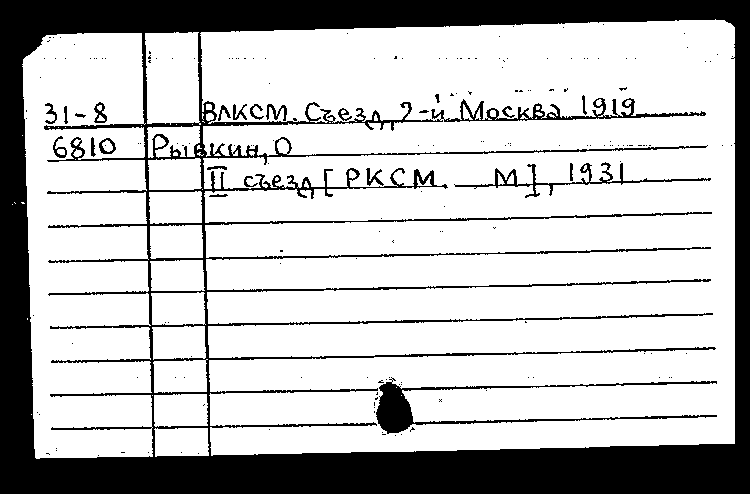 31-8 ВЛКСМ. Съезд, 2-й Москва 1919
6810 Рывкин, О
II съезд [РКСМ. М], 1931